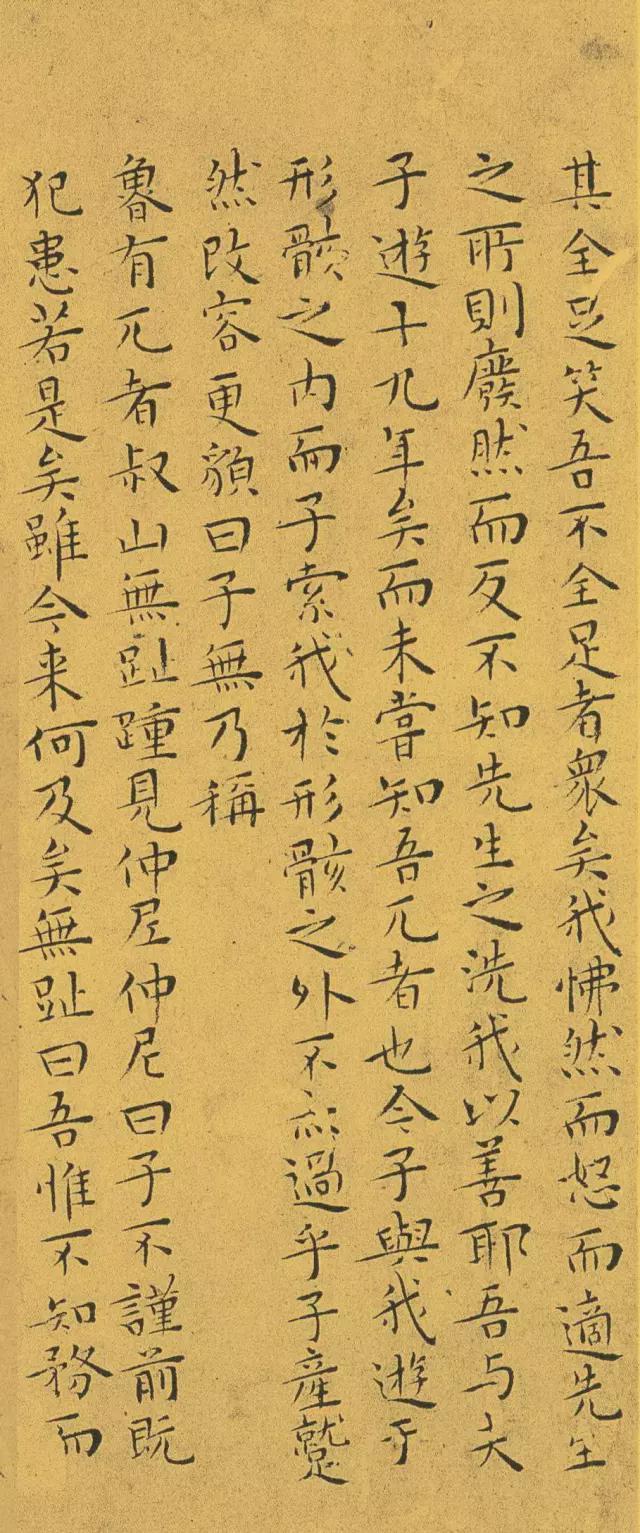 其全足笑吾不全足者衆矣我怫然而怒而適先生
之所則廢然而反不知先生之洗我以善耶吾与夫
子遊十九年矣而未嘗知吾兀者也今子與我遊于
形骸之内而子索我於形骸之外不亦過乎子產蹵
然改容更貌曰子無乃稱
魯有兀者叔山無趾踵見仲尼仲尼曰子不謹前既
犯患若是矣雖今来何及矣無趾曰吾惟不知務而